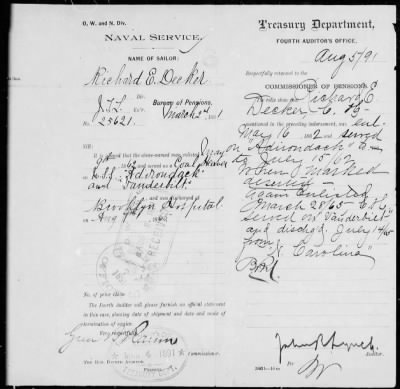 O. W. and N. Div.
NAVAL SERVICE.
NAME OF SAILOR:
Richard E. Decker
Bureau of Pensions,
March 2 1891
25621
It is alleged that the above-named enlisted
1862 as Coal Heaver
U.S.S. Adirondack
and Vanderbilt
and was discharged at
Brooklyn Hospital
No. of prior claim
The Fourth Auditor will please furnish an official statement
in this case, showing date of shipment and date and mode of
termination of service.
Very respectfully,
Green B. Raum
Commissioner.
The Hon. Fourth Auditor,
Treasury Department,
FOURTH AUDITOR'S OFFICE,
Aug 5/91
Respectfully returned to the
COMMISSIONER OF PENSIONS.
The rolls show that Richard E
Decker
mentioned in the preceding indorsement, was enl
May 16 1862 and served
on "Adirondack"
to July 15/62
when marked
deserted
again enlisted
March 28/65
served on "Vanderbilt"
and dischgd. July 14/65
from
"N. Carolina"
John R. Lynch